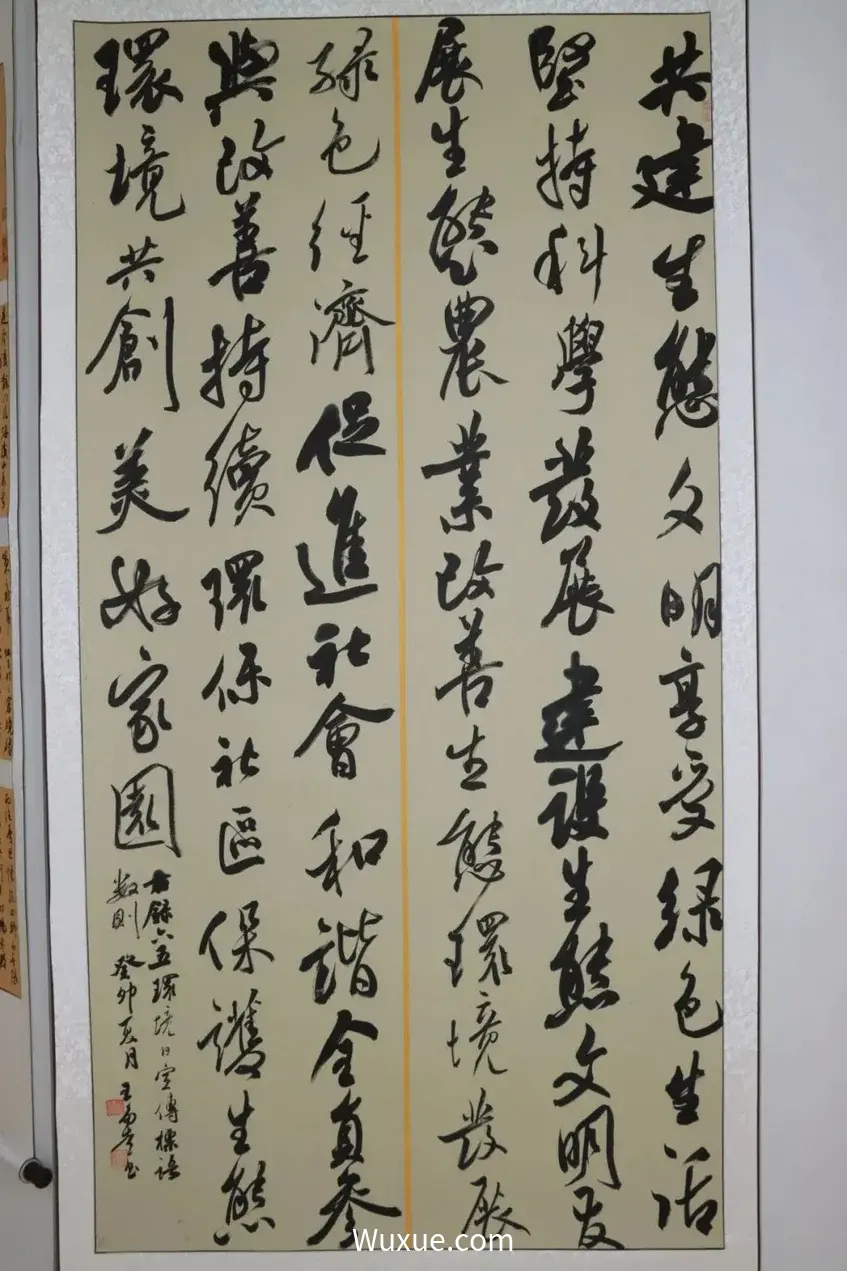 共建生態文明享受绿色生活
堅持科學發展建設生態文明发
展生態農業改善生態環境發展
绿色經濟促進社會和諧全員參
與改善持續環保社區保護生態
環境共創美好家園
右録六五環境日宣傳標語
數則 癸卯夏月 王書
Wuxue.com